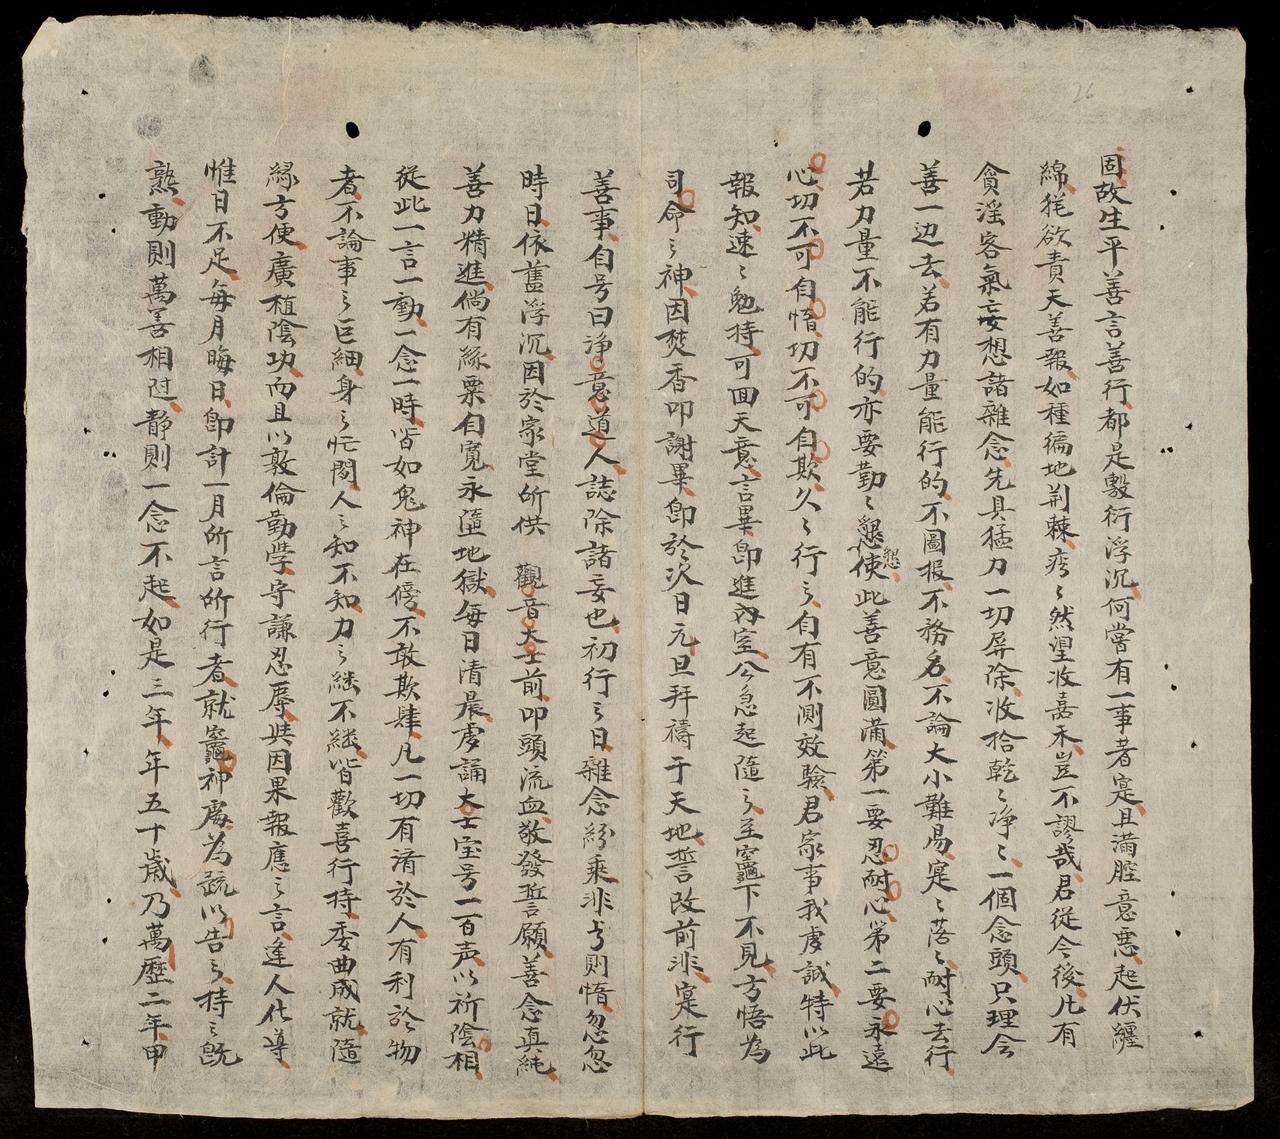 26
固故生平善言善行都是敷衍浮沉何嘗有一事着寔且滿腔意悪起伏纏
綿猶欲責天善報如種徧地荆棘痴〻然望收嘉禾豈不謬哉君從今後凡有
貪淫客氣妄想諸雜念先具猛力一切屏除收拾乾〻净〻一個念頭只理会
善一边去若有力量能行的不圖报不務名不論大小難易寔〻落〻耐心去行
若力量不能行的亦要勤〻懇懇使此善意圓滿第一要忍耐心第二要永遠
心切不可自惰切不可自欺久〻行之自有不測效驗君家事我虔誠特以此
報知速〻勉持可囬天意言畢即進內室公急起隨之至竈下不見方悟為
司命之神因焚香叩謝畢即於次日元旦拜禱于天地誓改前非寔行
善事自号曰净意道人誌除諸妄也初行之日雜念紛乘非与則惰忽忽
時日依舊浮沉因於家堂所供 觀音大士前叩頭流血敬發誓願善念真純
善力精進倘有絲粟自寬永墮地獄每日清晨虔誦大士宝号一百声以祈陰相
從此一言一動一念一時皆如鬼神在傍不敢欺肆凡一切有濟於人有利於物
者不論事之巨細身之忙閒人之知不知力之継不継皆歡喜行持委曲成就隨
緣方便廣植陰功而且以敦倫勤學守謙忍辱與因果報應之言逢人化導
惟日不足每月晦日即計一月所言所行者就竈神處為疏以告之持之旣
熟動則萬善相隨静則一念不起如是三年年五十歲乃萬歷二年甲